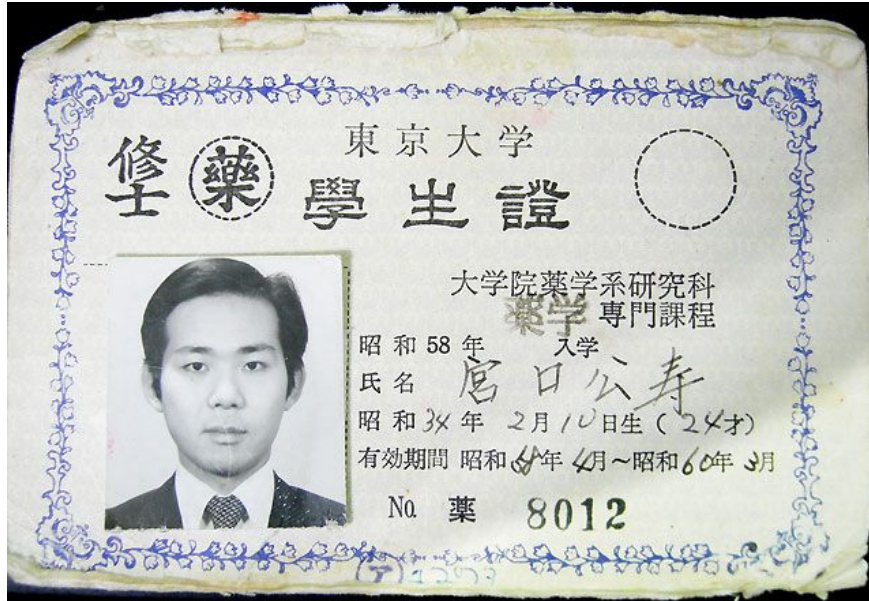 東京大学
修士 藥
學生證
大学院薬学系研究科
薬学 専門課程
昭和 58 年 入学
氏名 宮口公寿
昭和 34 年 2月 10 日生 ( 24才)
有効期間 昭和 年 4月~昭和 60年 3月
No. 薬 8012